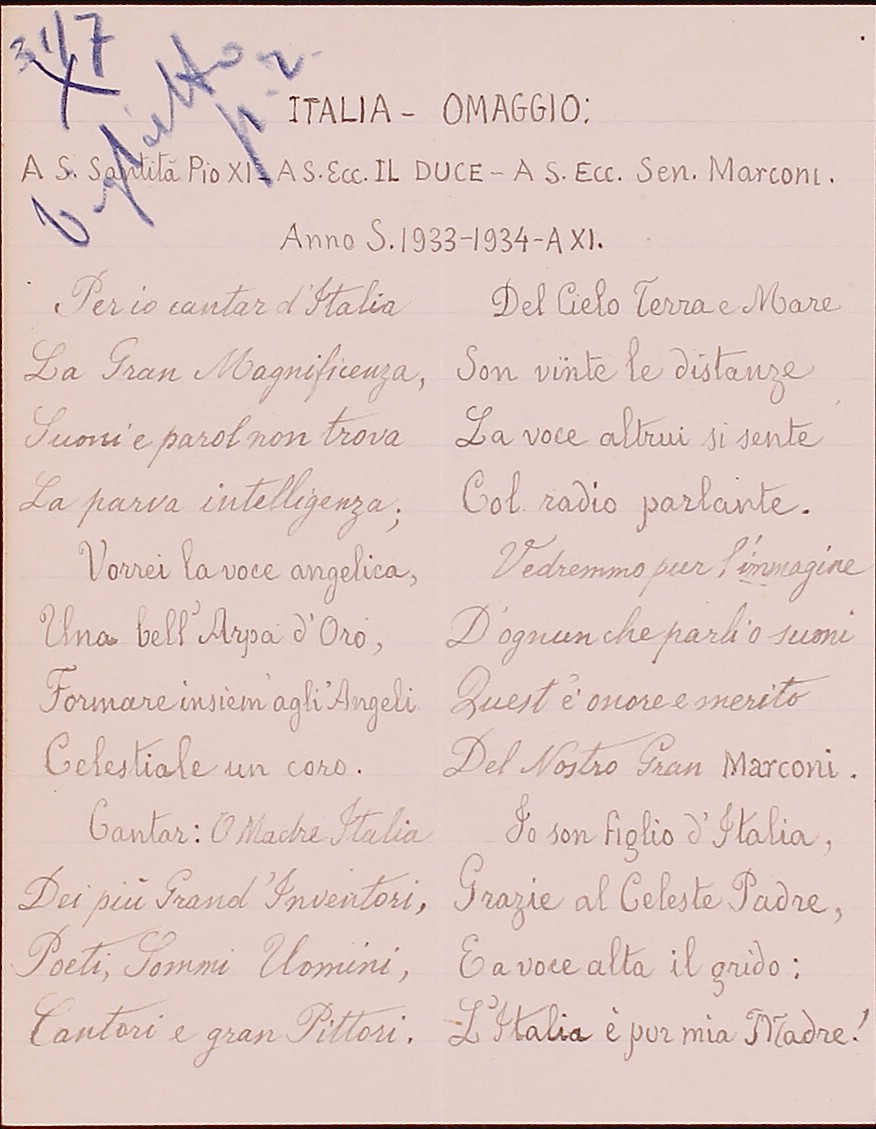 31/7
Biglietto
p. r.
ITALIA - OMAGGIO:
A S. Santità Pio XI - A S. Ecc. IL DUCE - A S. Ecc. Sen. Marconi.
Anno S. 1933-1934-A XI.
Per io cantar d'Italia
La Gran Magnificenza,
Suoni e parol non trova
La parva intelligenza;
Vorrei la voce angelica,
Una bell'Arpa d'Oro,
Formare insiem'agli'Angeli
Celestiale un coro.
Cantar: O Madre Italia
Dei più Grand'Inventori,
Poeti, Sommi Uomini,
Cantori e gran Pittori.
Del Cielo Terra e Mare
Son vinte le distanze
La voce altrui si sente
Col radio parlante.
Vedremmo pur l'immagine
D'ognun che parli o suoni
Quest'è onore e merito
Del Nostro Gran Marconi.
Io son figlio d'Italia,
Grazie al Celeste Padre,
E a voce alta il grido:
L'Italia è pur mia Madre!